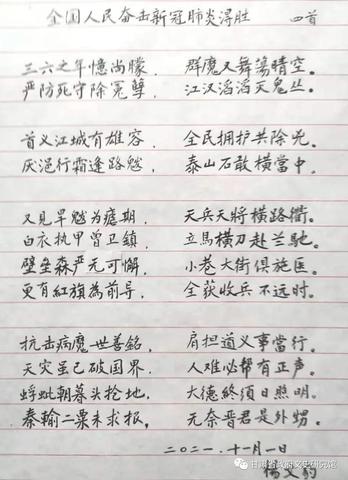 全国人民奋击新冠肺炎得胜 四首
三六之年憶尚朦， 群魔又舞荡晴空。
严防死守除冤孽， 江汉滔滔灭鬼丛。
首义江城有雄容， 全民拥护共除
厌浥行霜逢路魃， 泰山石敢横當中。
又见旱魃为瘧期， 天兵天將横路衢。
白衣执甲曾卫鎮， 立馬横刀赴兰馳。
壁垒森严无可懈， 小巷大街俱施医。
更有紅旗為前导， 全获收兵不远时。
抗击病魔世善铭， 肩担道义事當行。
天灾虽已破国界， 人难必帮有正声。
蜉蚍朝暮头抢地， 大德終须日照明。
秦輸二粟未求报， 无奈晋君是外甥。
二〇二一．十一月一日
杨文
甘肃省政府文史研究馆